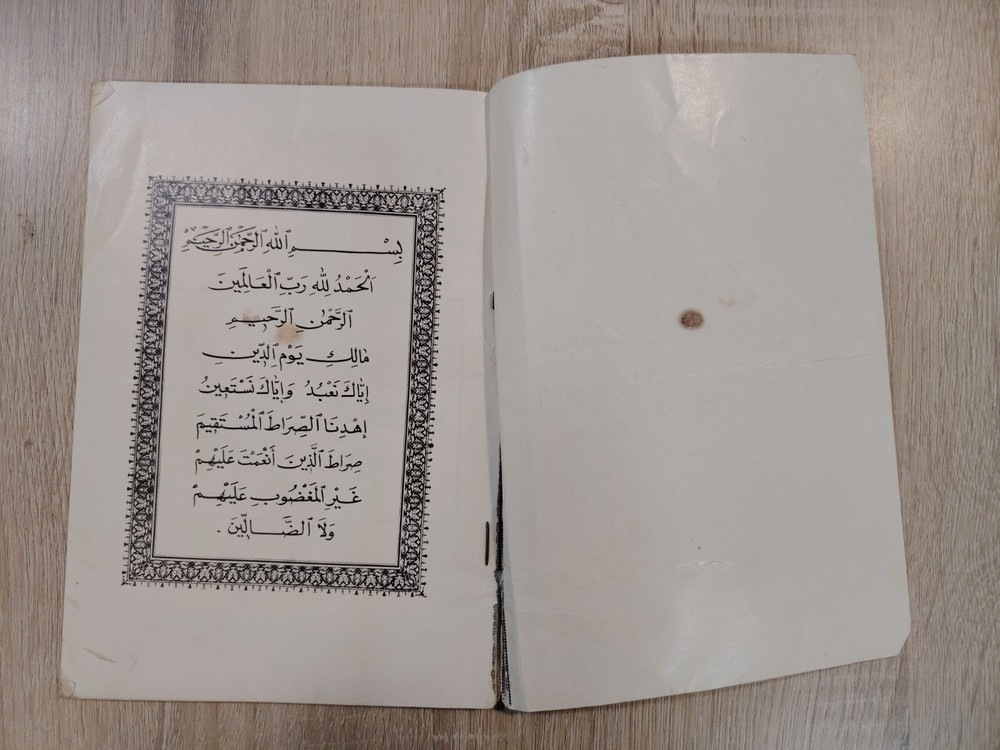 بِسْمِ ٱللهِ ٱلرَّحْمٰنِ ٱلرَّحِيْمِ
اَلْحَمْدُ لِلّٰهِ رَبِّ ٱلْعَالَمِينَ
ٱلرَّحْمٰنِ ٱلرَّحِيمِ
مَالِكِ يَوْمِ ٱلدِّينِ
إِيَّاكَ نَعْبُدُ وَإِيَّاكَ نَسْتَعِينُ
إِهْدِنَا ٱلصِّرَاطَ ٱلْمُسْتَقِيمَ
صِرَاطَ ٱلَّذِينَ أَنْعَمْتَ عَلَيْهِمْ
غَيْرِ ٱلْمَغْضُوبِ عَلَيْهِمْ
وَلَا ٱلضَّالِّينَ .